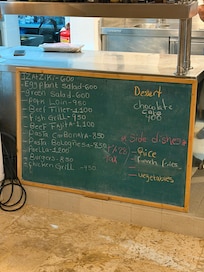 TZATZIKI-600
-Eggplant Salad-600
-Green Salad-600
-Pork Loin-950
-Beef Fillet-1,100
-Fish Grill-950
-Beef Fajita-1,100
-Pasta Carbonara-850
-Pasta Bolognese-850
-Paella-1200
-Burgers-850
-Chicken Grill-950
Dessert
chocolate
cake
side dishes
-Rice
-French fries
-vegetables